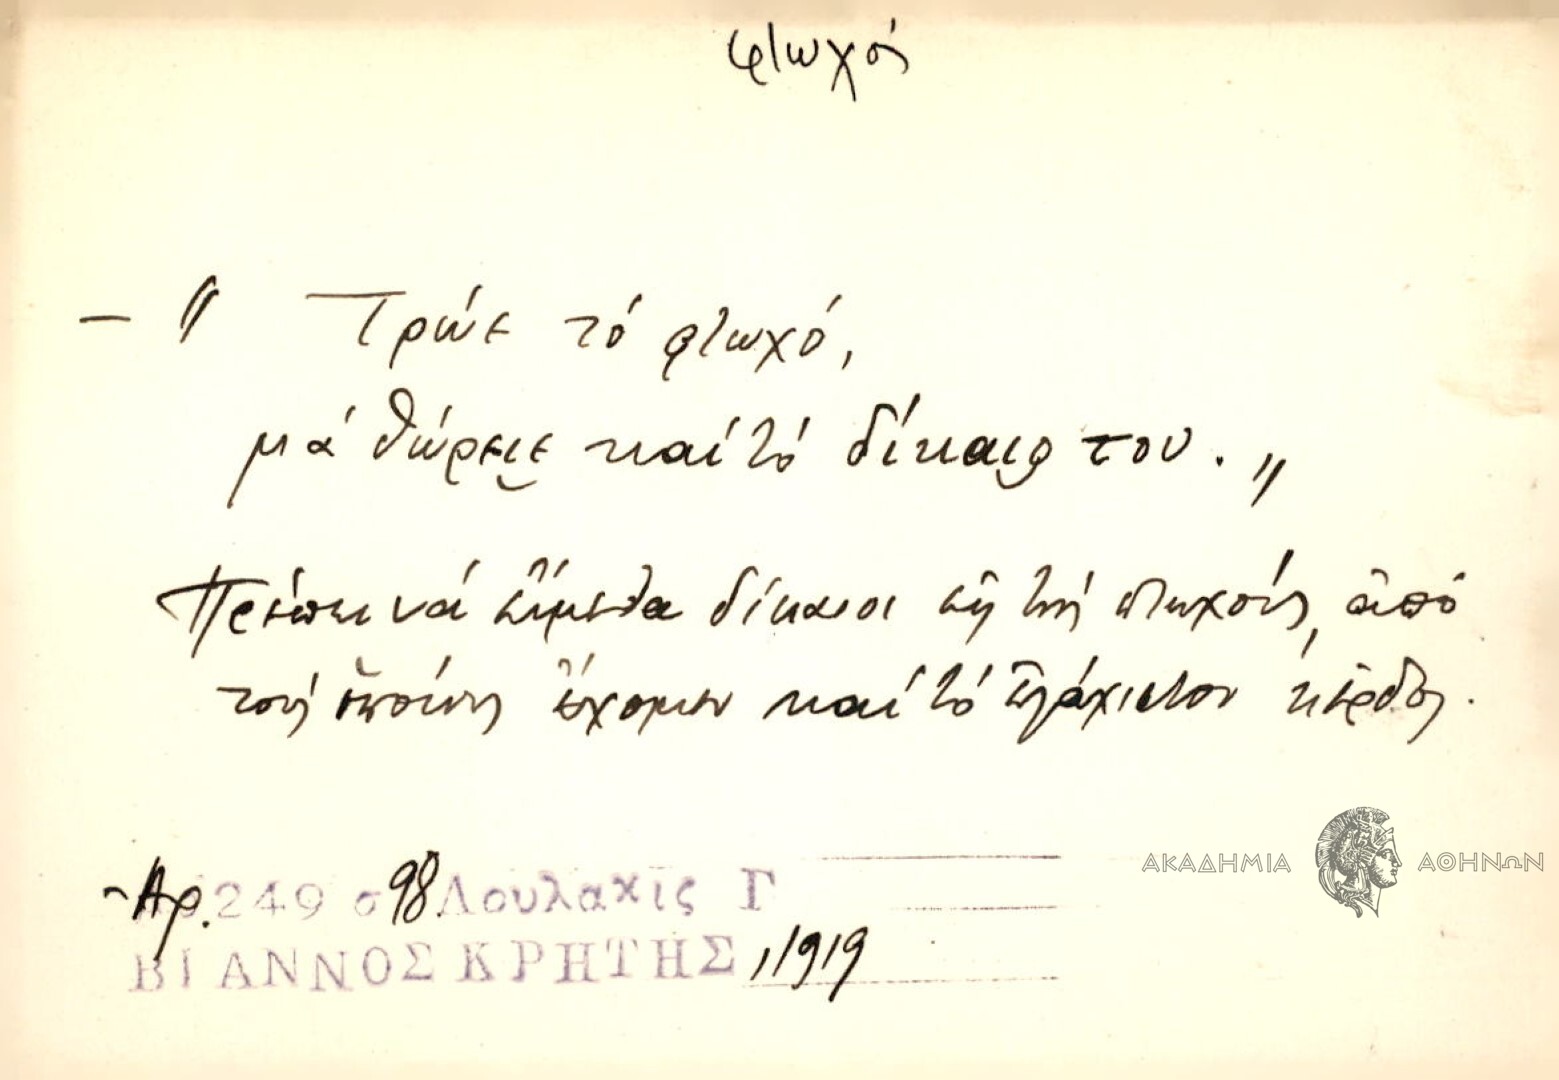 φτωχός
— " Τρώε τό φτωχό,
μά θώρειε καί τό δίκαιο του. "
Πρέπει νά εἴμεθα δίκαιοι εἰς τούς πτωχούς, ἀπό
τούς ὁποίους ἔχομεν καί τό ἐλάχιστον κέρδος.
Αρ. 249 σ 98. Λουλακις Γ
ΒΙΑΝΝΟΣ ΚΡΗΤΗΣ, 1919
ΑΚΑΔΗΜΙΑ ΑΘΗΝΩΝ